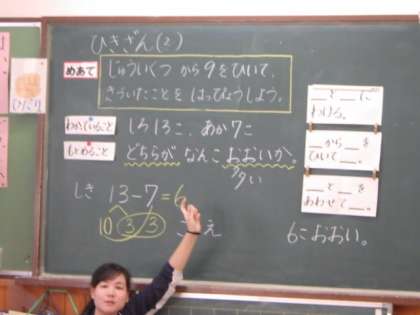 ひきざん(2)
めあて
じゅういくつから9をひいて、
きづいたことをはっぴょうしよう。
わかっていること
しろ13こ、あか7こ
もとめること
どちらがなんこおおいか。
しき 13-7=6
10 3 3
6こおおい。
＿と＿に、
わける。
＿から＿を
ひいて＿
＿と＿を
あわせて＿